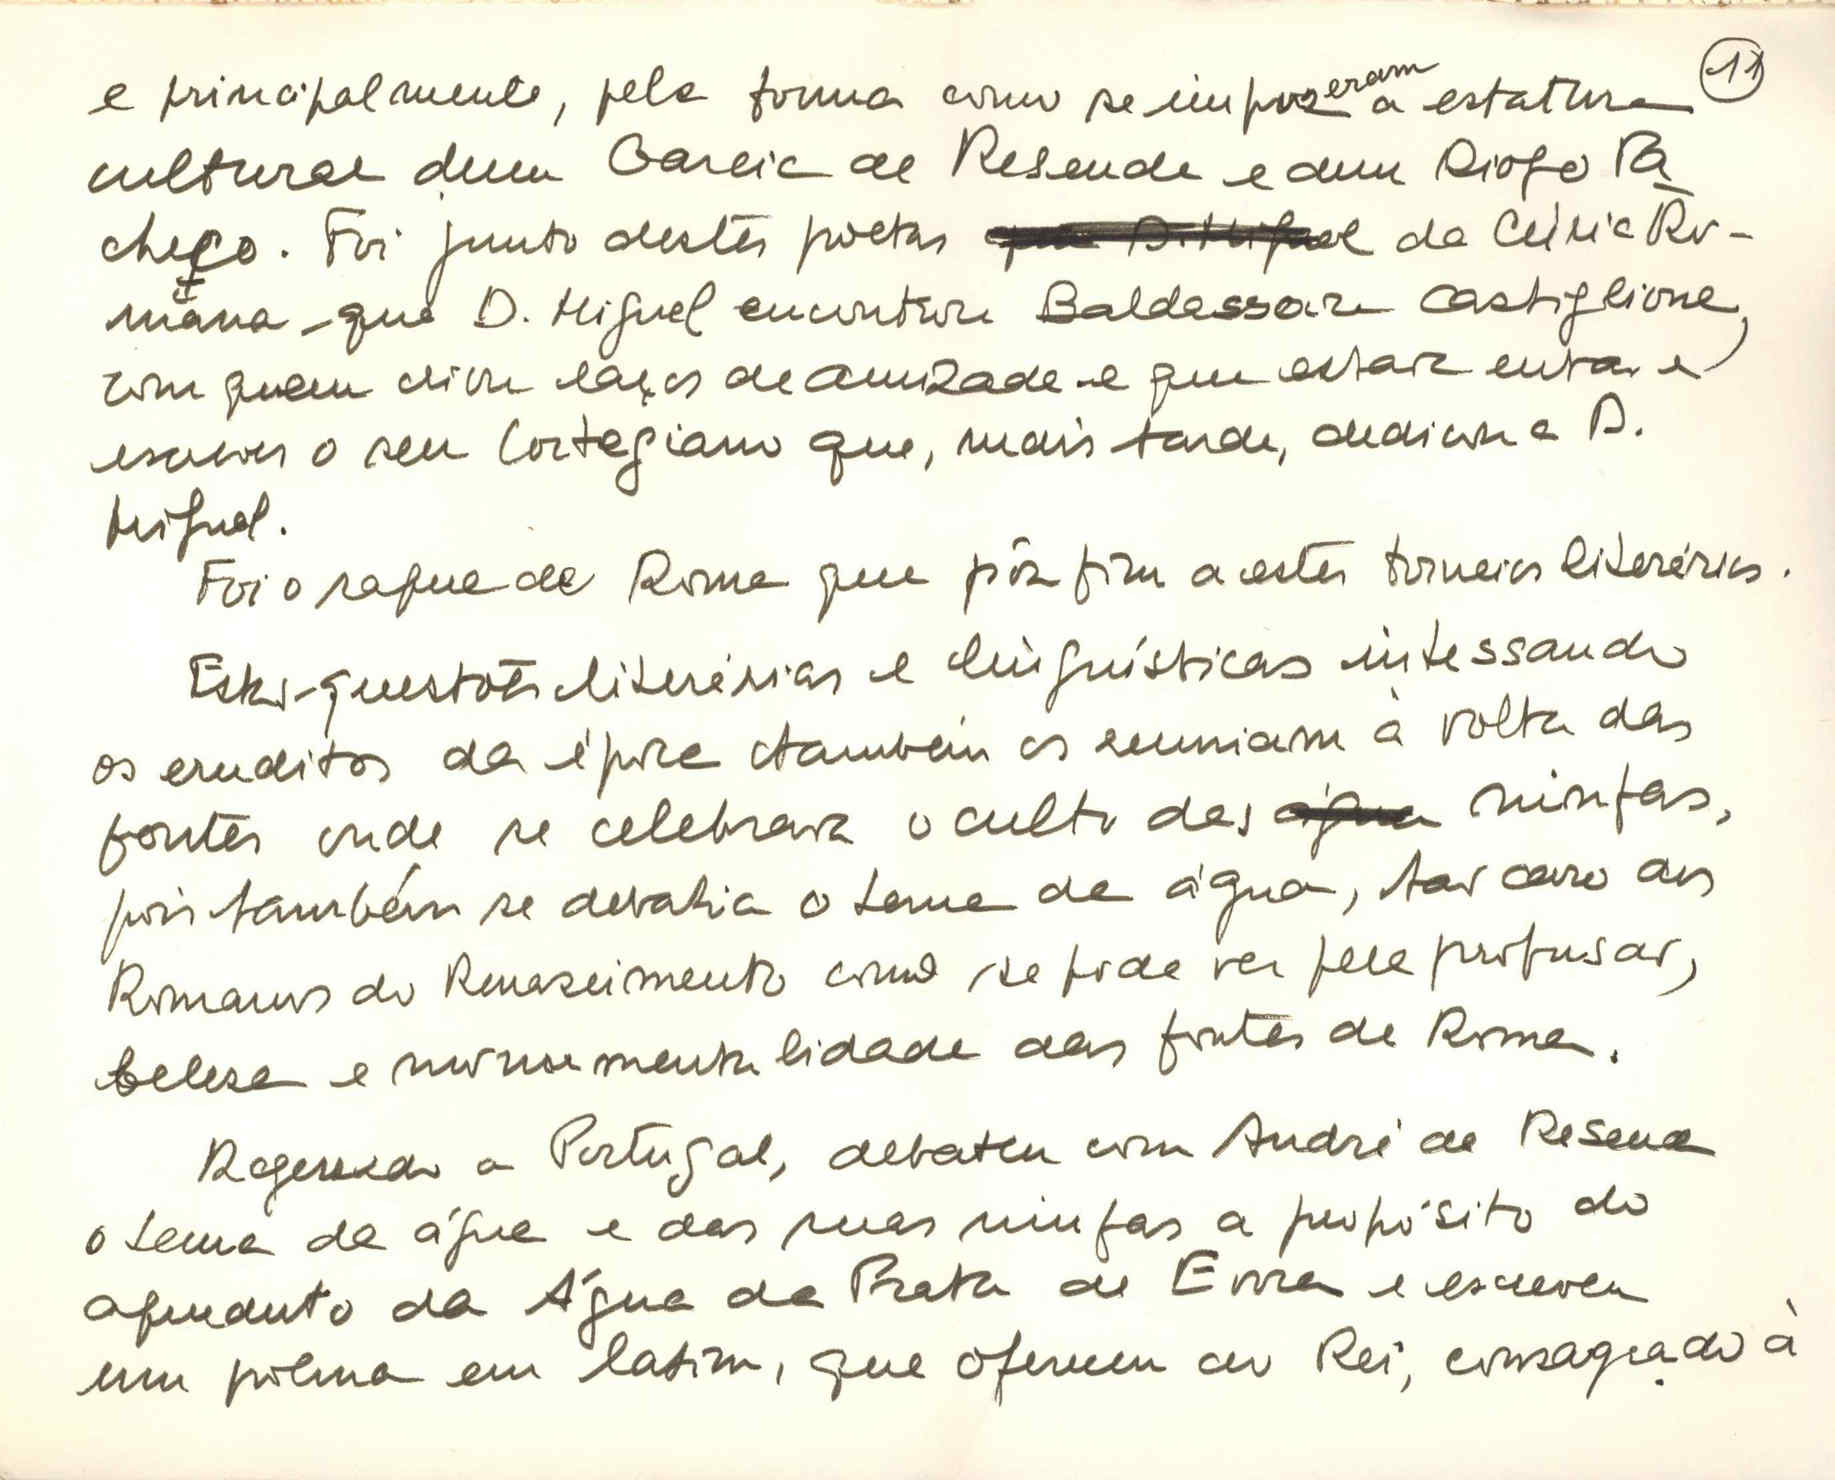 11
e principalmente, pela forma como se impozeram a estatura
cultural dum Garcia de Resende e dum Diogo Pa
checo. Foi junto destes poetas que D. Miguel da Cúria Ro-
mana - que D. Miguel encontrou Baldassare Castiglione,
com quem criou laços de amizade e que estava então a
escrever o seu Cortegiano que, mais tarde, dedicou a D.
Miguel.
Foi o saque de Roma que pôz fim a estes torneios literários.
Estas questões literárias e linguísticas intessando
os eruditos da época também os reuniam à volta das
fontes onde se celebrava o culto das água ninfas,
pois também se debatia o tema da água, tão caro aos
Romanos do Renascimento como se pode ver pela profusão,
beleza e monumentalidade das fontes de Roma.
a Portugal, debateu com André de Resende
o tema da água e das suas ninfas a propósito do
aqueduto da Água da Prata de Evora e escreveu
um poema em latim, que ofereceu ao Rei, consagrado à